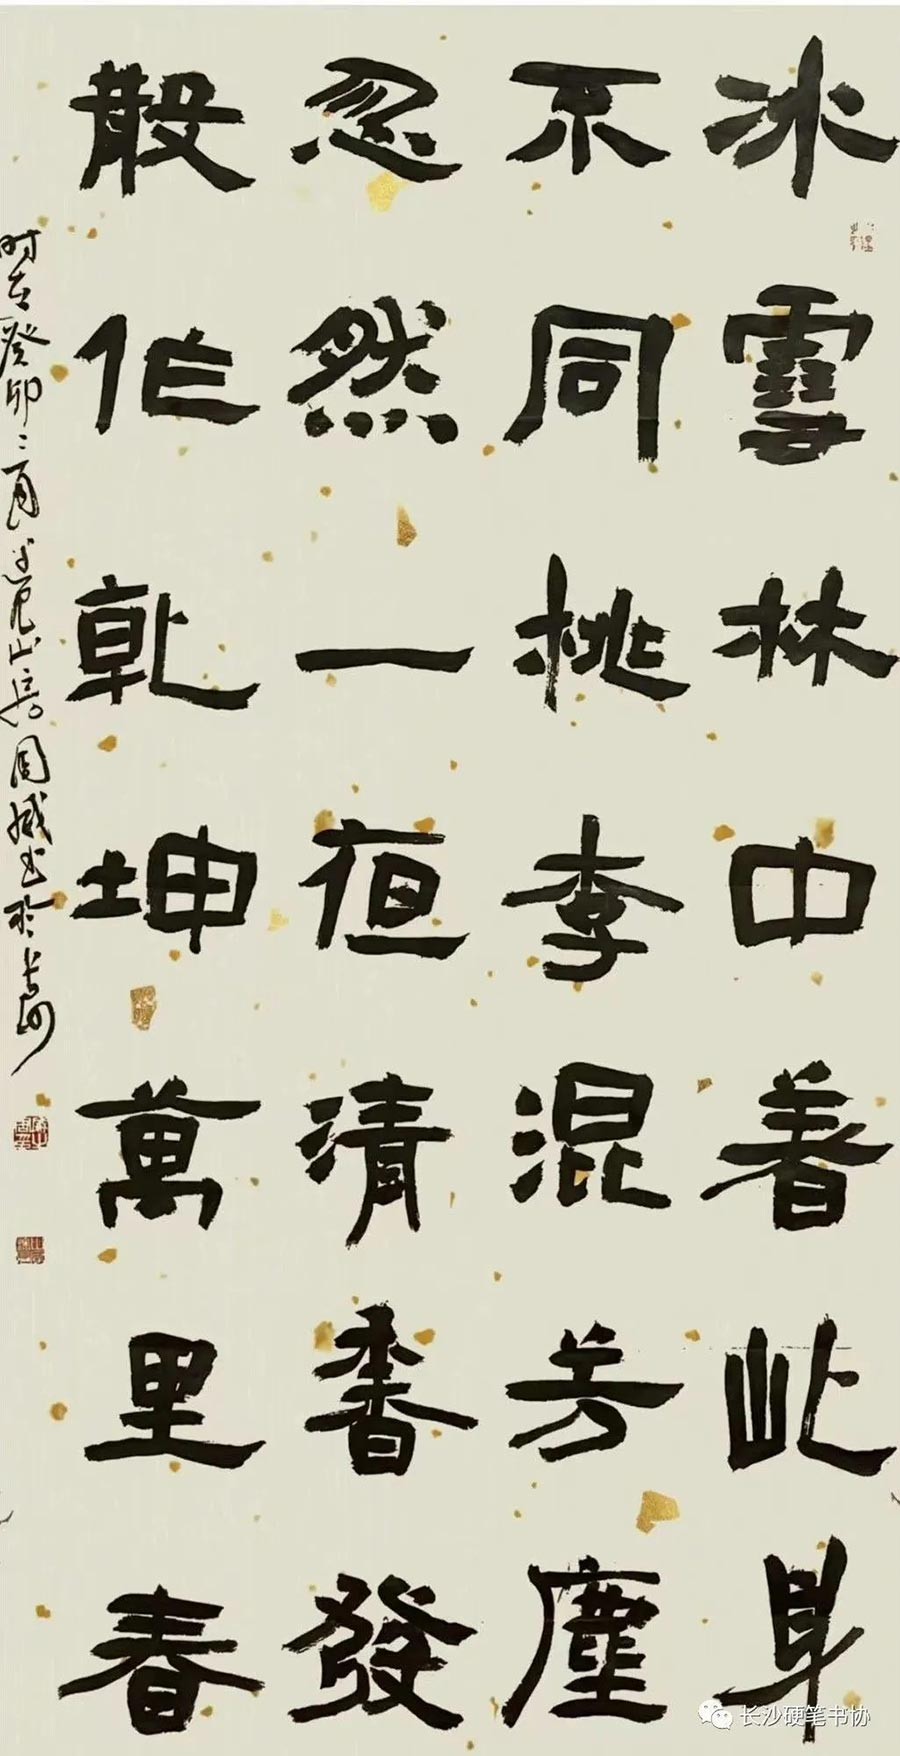 冰雪林中著此身
不同桃李混芳塵
忽然一夜清香發
散作乾坤萬里春
时在癸卯二
周斌书於长沙
长沙硬笔书协